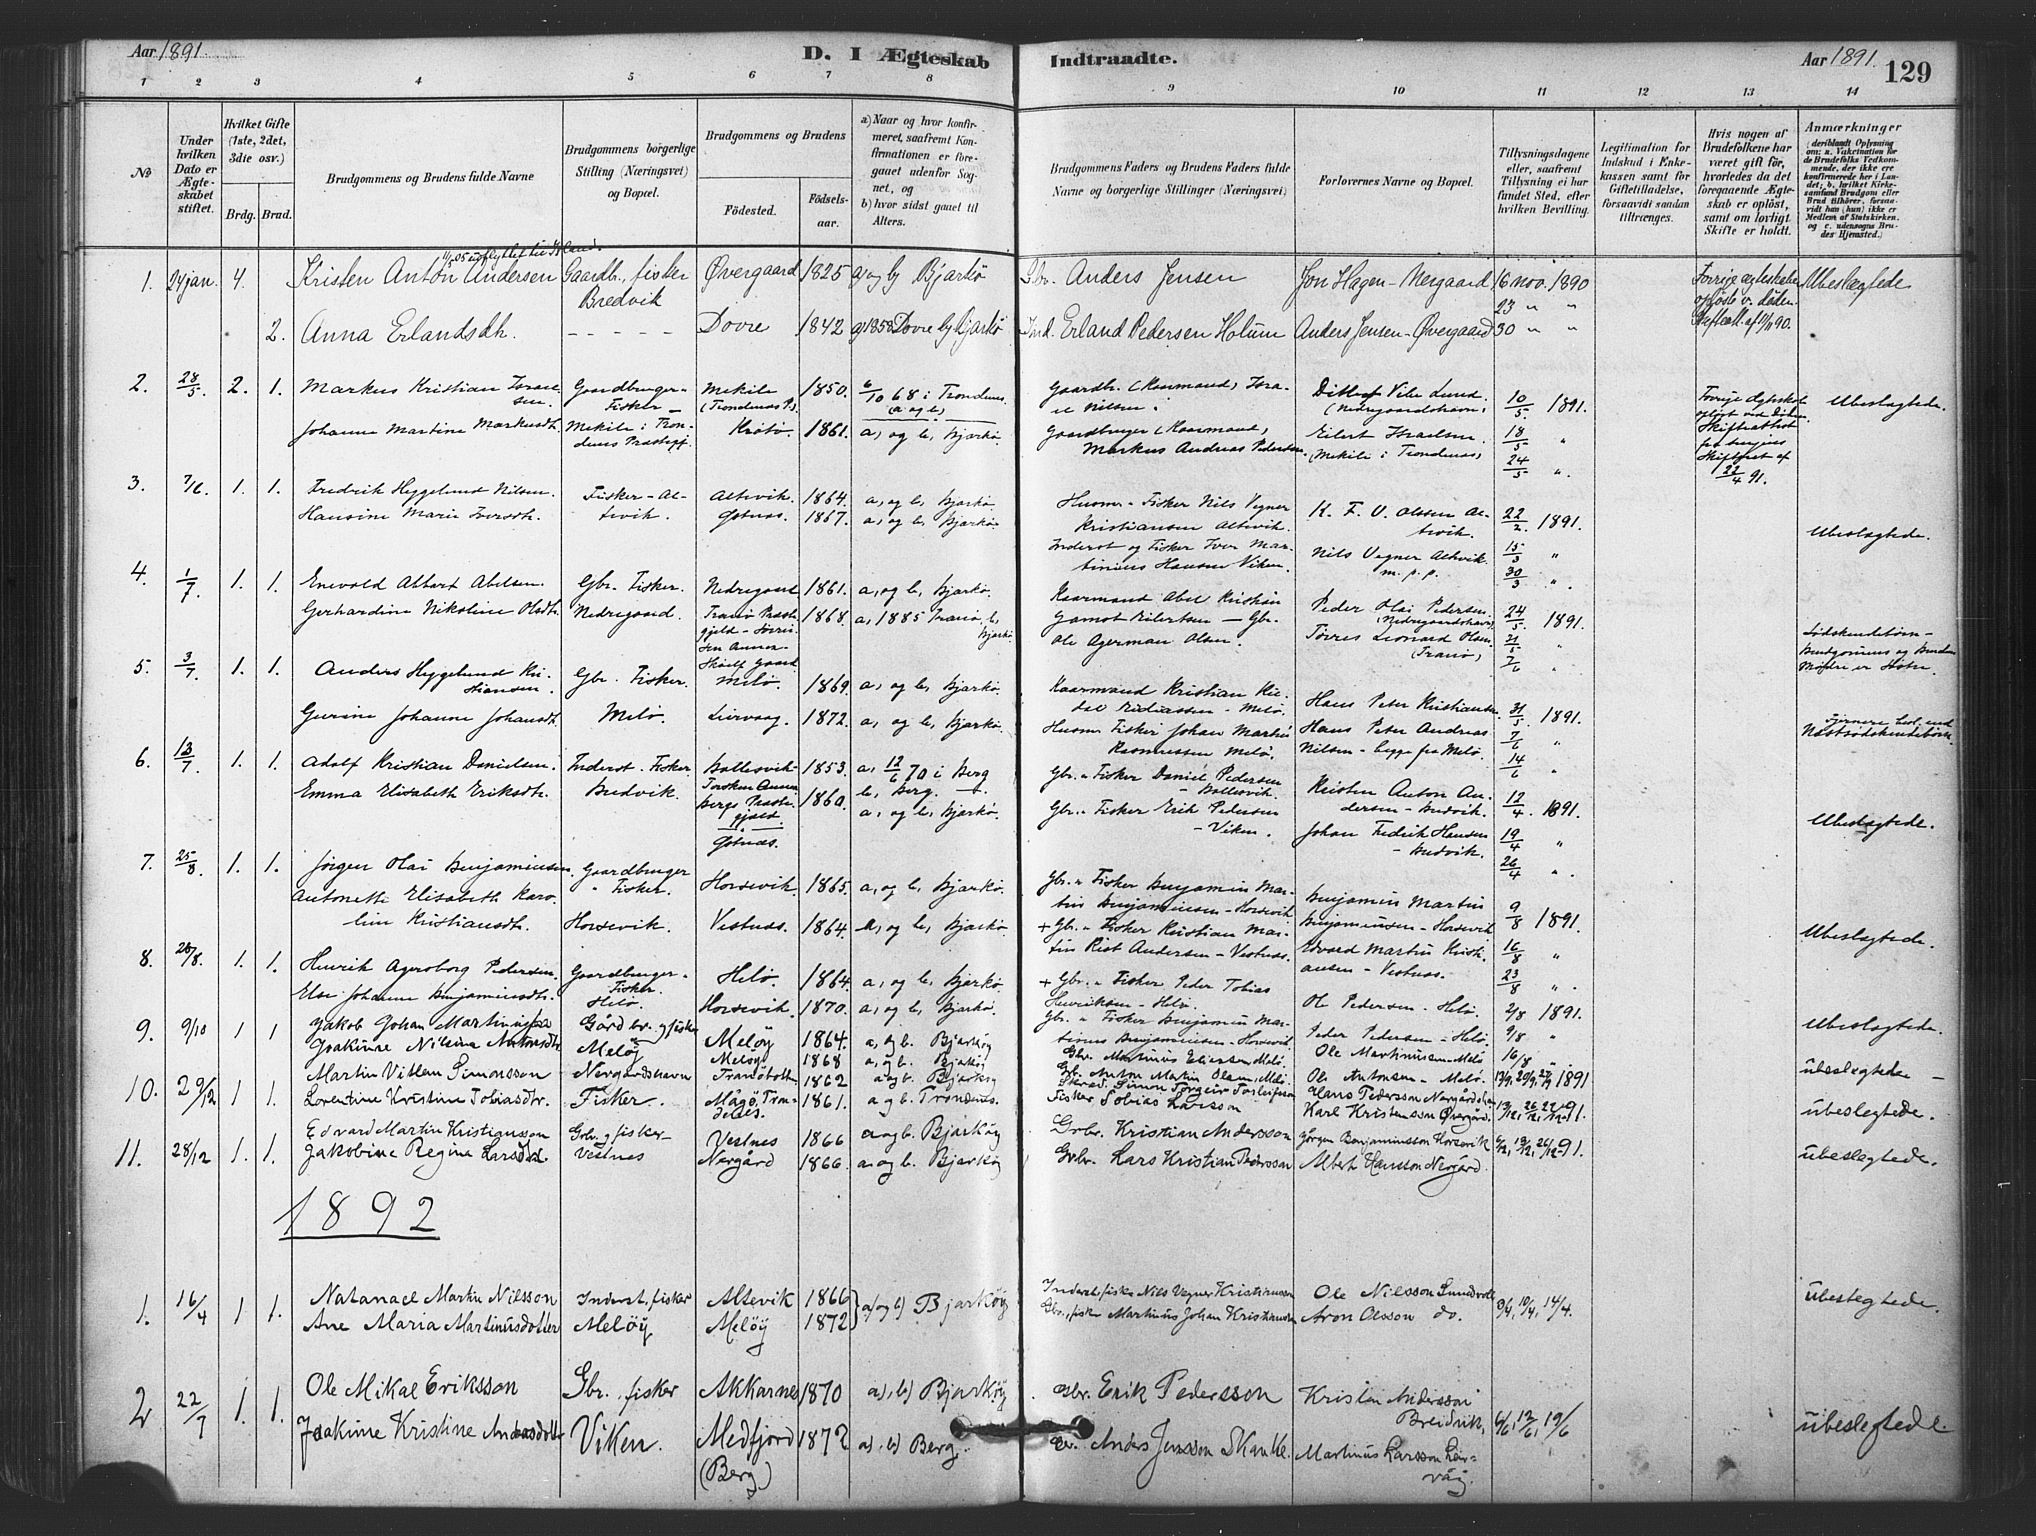 Aar 1891.
D. I Ægteskab Indtraadte.
Aar 1891.
129
1 2 3 4 5 6 7 8 9 10 11 12 13 14
No
Under hvilken Dato er Ægteskabet stiftet.
Hvilket Gifte (1ste, 2det, 3die osv.)
Brdg. Brud.
Brudgommens og Brudens fulde Navne
Brudgommens borgerlige Stilling (Næringsvei) og Bopæl.
Brudgommens og Brudens
Fødested.
Fødselsaar.
a) Naar og hvor konfirmeret, saafremt Konfirmationen er foregaaet udenfor Sognet, og
b) hvor sidst gaaet til Alters.
Brudgommens Faders og Brudens Faders fulde Navne og borgerlige Stillinger (Næringsvei)
Forlovernes Navne og Bopæl.
Tillysningsdagene eller, saafremt Tillysning ei har fundet Sted, efter hvilken Bevilling.
Legitimation for Indskud i Enkekassen samt for Giftetilladelse, forsaavidt saadan tiltrænges.
Hvis nogen af Brudefolkene har været gift før, hvorledes da det foregaaende Ægteskab er opløst, samt om lovligt Skifte er holdt.
Anmærkninger (deriblandt Oplysning om: a. Vakcination for de Brudefolks Vedkommende, der ikke ere konfirmerede her i Landet; b. hvilket Kirkesamfund Brudgom eller Brud tilhører, forsaavidt han (hun) ikke er Medlem af Statskirken, og c. udensogns Brudes Hjemsted.)
1. 24 jan. 4. Kristen Anton Andersen Gaardb., fisker Øvergaard 1825 a) og b) Bjarkö Gbr. Anders Jensen Jon Hagen - Nergaard 16 nov. 1890 Forrige ægteskaber Ubeslægtede
Bredvik 23 " "
2. Anna Erlandsdh. - - - - - Dovre 1842 a) 1858 Dovre b) Bjarkö Ind. Erland Pedersen Holum Anders Jensen - Øvergaard 30 " "
2. 28/5 2. 1. Markus Kristian Israelsen. Gaardbruger - Fisker - Mekile (Trondenæs P.) 1850. 6/10 68 i Trondenæs. (a og b) Gaardbr. (Kaarmand) Israel Nilsen. Ditlef Vibe Lund (Nedregaardshavn) 10/5 1891. Ubeslægtede.
Johanne Martine Markusdt. Mekile i Trondenæs Præstegj. Krötö. 1861. a, og b, Bjarkö. Gaardbruger (Kaarmand) Markus Andreas Pedersen. Eilert Israelsen. (Mekile i Trondenæs) 18/5 "
24/5 " 22/4 91.
3. 7/6 1. 1. Fredrik Hygelund Nilsen. Fisker - Altevik. Altevik. 1864. a, og b, Bjarkö. Husm. - Fisker Nils Vegner Kristiansen Altevik. K. F. U. Olsen Altevik. 22/2 1891. Ubeslægtede.
Hansine Marie Iversdt. Gotnæs. 1867. a, og b, Bjarkö. Inderst og Fisker Iver Martinius Hansen Viken. Nils Vegner Altevik. m. p. p. 15/3 "
30/3 "
4. 1/7 1. 1. Enevold Albert Abelsen. Gbr. Fisker. Nedregaard 1861. a, og b, Bjarkö. Kaarmand Abel Kristian Gamst Eilertsen - Gbr. Peder Olai Pedersen. (Nedregaardshavn) 24/5 1891.
Gerhardine Nikoline Olsdt. Nedregaard. Tranö Præstegjeld 1868. a, 1885 Tranö, b, Bjarkö. Ole Agerman Olsen. Törres Leonard Olsen (Tranö) "
7/6 "
5. 3/7 1. 1. Anders Hygelund Kristiansen. Gbr. Fisker. Melö. 1869. a, og b, Bjarkö. Kaarmand Kristian Kildal - Melö. Hans Peter Kristiansen. 31/5 1891.
Gurine Johanne Johansdt. Melö. Leirvaag. 1872. a, og b, Bjarkö. Husm. Fisker Johan Martin Rasmussen Melö. Hans Peter Andreas Nilsen - begge fra Melö. 7/6 "
14/6 "
6. 13/7 1. 1. Adolf Kristian Danielsen. Inderst. Fisker. Ballesvik 1853. a, 12/6 70 i Berg b, Berg. Gbr. " Fisker Daniel Pedersen - Ballesvik. Kristen Anton Andersen - Bredvik. 12/4 1891. Ubeslægtede.
Emma Elisabeth Eriksdt. Bredvik. Gotnæs. 1860. a, og b, Bjarkö. Gbr. " Fisker Erik Pedersen - Viken. Johan Fredrik Hansen - Bredvik. 19/4 "
26/4 "
7. 25/8 1. 1. Jörgen Olai Benjaminsen. Gaardbruger " Fisker. Horsevik. 1865. a, og b, Bjarkö. Gbr. " Fisker Benjamin Martin Benjaminsen - Horsevik Benjamin Martin Benjaminsen - Horsevik 9/8 1891. Ubeslægtede.
Antonette Elisabeth Karoline Kristiansdt. Horsevik. Vestnæs. 1864. a, og b, Bjarkö. + Gbr. " Fisker Kristian Martin Rist Andersen - Vestnæs. Edvard Martin Kristiansen - Vestnæs. 16/8 "
23/8 "
8. 28/8. 1. 1. Henrik Ageroborg Pedersen. Gaardbruger - Fisker. Helö. Helö. 1864. a, og b, Bjarkö. + Gbr. " Fisker Peder Tobias Henriksen - Helö. Ole Pedersen - Helö. 2/8 1891. Ubeslægtede.
Else Johanne Benjaminsdt. Horsevik. 1870. a, og b, Bjarkö. Gbr. " Fisker Benjamin Martinus Benjaminsen - Horsevik. Peder Pedersen - Helö. 9/8 "
16/8 "
9. 9/10 1 1 Jakob Johan Martinussen Gårdbr. og fisker Meløy 1864. a, og b. Bjarkøy Gbr. Martinus Eliassen, Melö. Ole Martinussen - Melö ubeslægtede -
Joakime Nilsine Antonsdtr. Meløy Meløy 1868 a, og b. Bjarkøy Gbr. Anton Martin Olsen, Melö. Ole Antonsen - Melö. 13/9, 20/9, 27/9 1891
10. 29/12 1 1. Martin Vitlem Simonsson Nergårdshavn Tranöbotn 1862 a og b. Bjarkøy Skræd. Simon Torgeir Torleifsson Hans Pedersson Nergårdshn. ubeslægtede.
Lorentine Kristine Tobiasdtr. Fisker. Mågø, Trondenes. 1861. a og b. Trondenes. Fisker Tobias Larsson Karl Kristensson Øvergård. 13/12, 26/12, 27/12 91.
11. 28/12 1. 1. Edvard Martin Kristiansson Grbr. og fisker - Vestnes 1866 a og b. Bjarkøy Grbr. Kristian Andersson Jørgen Benjaminsson Horsevik 6/12, 13/12, 26/12 - 91. ubeslegtede.
Jakobine Regine Larsdtr. Vestnes Nergård 1866. a. og b. Bjarkøy Grbr. Lars Kristian Pedersson Albert Hansson Nergård.
1892
1. 16/4 1 1. Natanael Martin Nilsson Inderst, fisker Altevik 1866 a) og b) Bjarkøy Inderst, fisker Nils Vegner Kristiansson Ole Nilsson Lundvoll 3/4, 10/4, 14/4. ubeslegtede.
Ane Maria Martinusdotter Meløy Meløy 1872 Gbr., fisker Martinus Johan Kristiansen Aron Olsson do.
2 22/7 1. 1. Ole Mikal Eriksson Gbr., fisker Akkarnes 1870 a), b) Bjarkøy Gbr. Erik Pedersson Kristen Andersson Breidvik, 6/6, 12/6, 19/6 ubeslegtede
Joakime Kristine Andersdotter Viken. Medfjord (Berg) 1872 a), b) Berg. Gbr. Anders Jensson Skanke. Martinus Larsson Leirvåg.